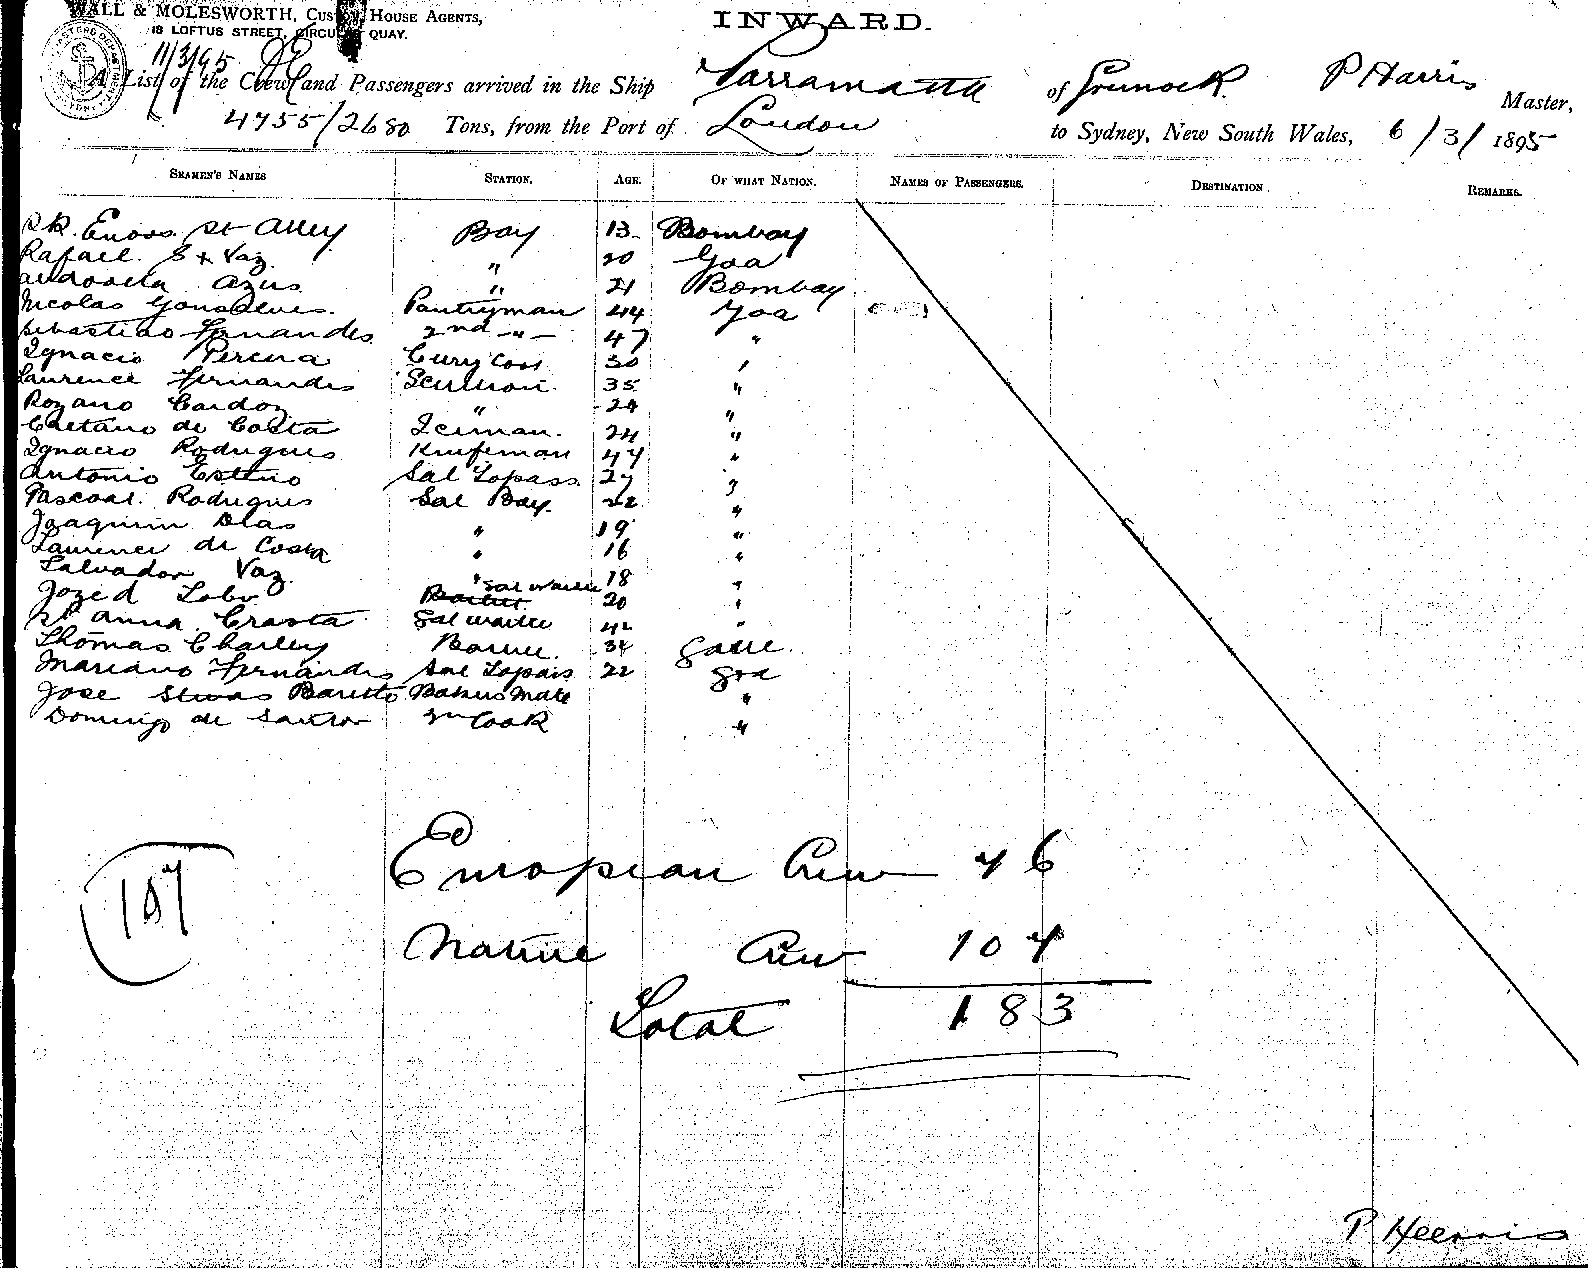 WALL & MOLESWORTH, Custom House Agents,
18 LOFTUS STREET, CIRCULAR QUAY.
INWARD.
11/3/95
A List of the Crew and Passengers arrived in the Ship Parramatta of Greenock P Harris Master,
4755/2680 Tons, from the Port of London to Sydney, New South Wales, 6/3/1895
Seamen's Names Station. Age. Of what Nation. Names of Passengers. Destination. Remarks.
Boy 13 Bombay
Rafael Vaz " 20 Goa
Azus " 21 Bombay
Nicolas Gonsalves. Pantryman 44 Goa
Sebastiao Fernandes 2nd -"- 47 "
Ignacio Pereira Curry Cook 30 "
Laurence Fernandes Scullion 35 "
Rozario Cardoz " 24 "
Caetano de Costa Iceman. 24 "
Ignacio Rodrigues Knifeman 44 "
Antonio Sal Topass 27 "
Pascoal Rodrigues Sal Boy. 22 "
Joaquim Dias " 19 "
Laurence de Costa " 16 "
Salvador Vaz " 18 "
Lobo Sal Waiter 20 "
Anna Crasta Sal Waiter 42 "
Thomas Charley 34 Galle
Mariano Fernandes Sal Topass 22 Goa
Jose Baretto Bakers Mate "
Domingo de Santos Cook "
European Crew 46
Native Crew 104
Total 183
107
P Harris